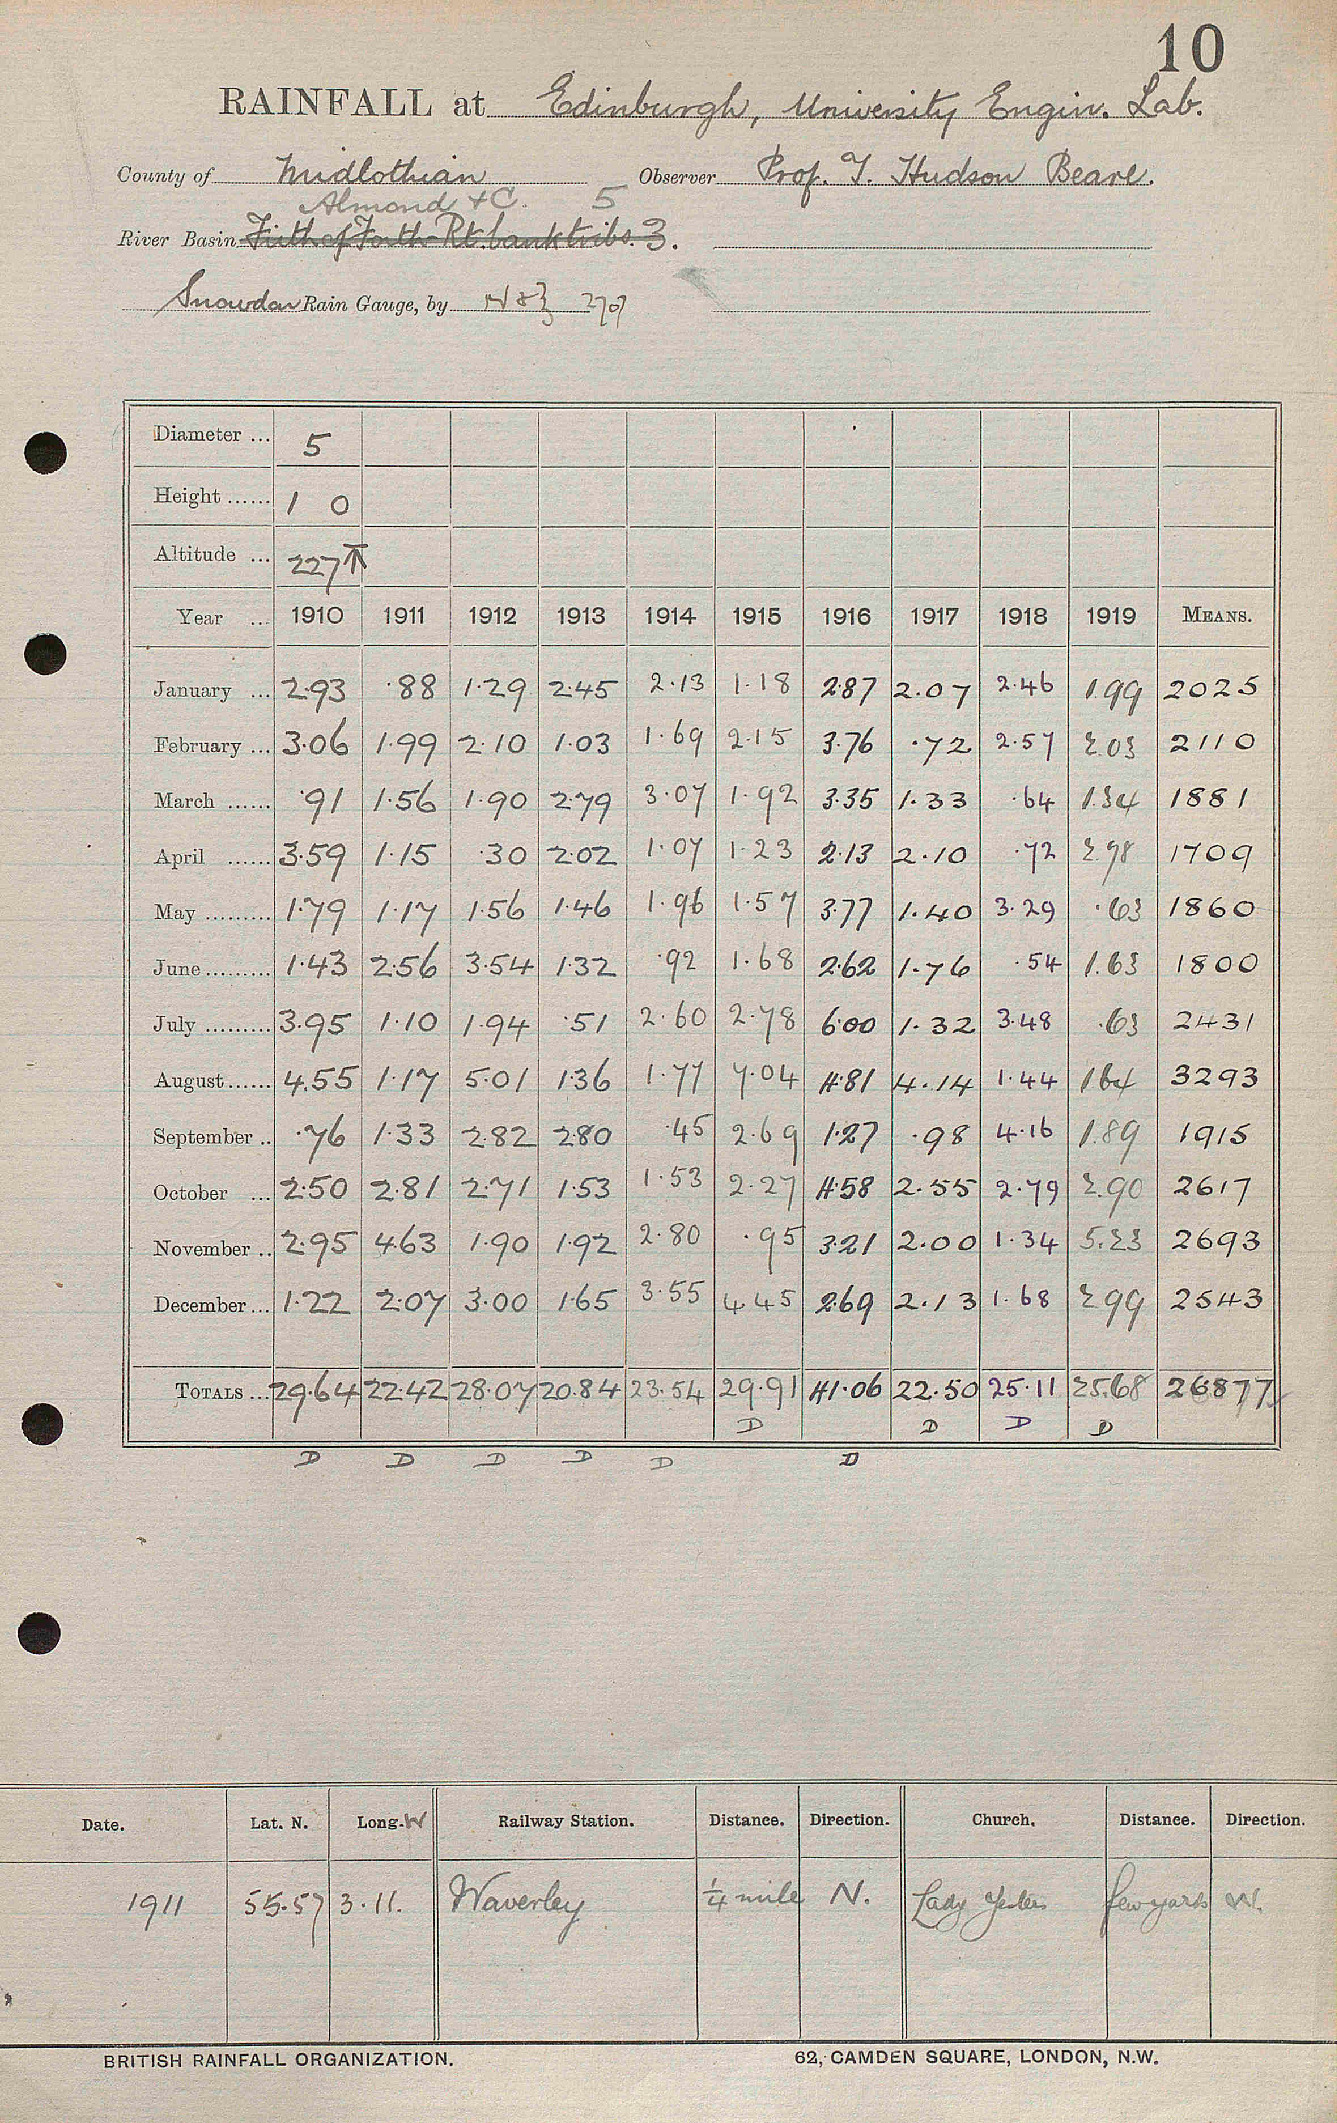 10
RAINFALL at Edinburgh, University Engin. Lab.
County of Midlothian Observer Prof. T. Hudson Beare.
Almond & C. 5
River Basin Firth of Forth Rt. bank tribs. 3.
Snowdon Rain Gauge, by N & Z
Diameter ... 5
Height ...... 1 0
Altitude ... 227
Year ... 1910 1911 1912 1913 1914 1915 1916 1917 1918 1919 MEANS.
January ... 2.93 .88 1.29 2.45 2.13 1.18 2.87 2.07 2.46 1.99 2025
February ... 3.06 1.99 2.10 1.03 1.69 2.15 3.76 .72 2.57 2.03 2110
March ...... .91 1.56 1.90 2.79 3.07 1.92 3.35 1.33 .64 1.34 1881
April ...... 3.59 1.15 .30 2.02 1.07 1.23 2.13 2.10 .72 2.78 1709
May ......... 1.79 1.17 1.56 1.46 1.96 1.57 3.77 1.40 3.29 .63 1860
June ......... 1.43 2.56 3.54 1.32 .92 1.68 2.62 1.76 .54 1.63 1800
July ......... 3.95 1.10 1.94 .51 2.60 2.78 6.00 1.32 3.48 .63 2431
August ...... 4.55 1.17 5.01 1.36 1.77 7.04 4.81 4.14 1.44 1.64 3293
September .. .76 1.33 2.82 2.80 .45 2.69 1.27 .98 4.16 1.89 1915
October ... 2.50 2.81 2.71 1.53 1.53 2.27 4.58 2.55 2.79 2.90 2617
November .. 2.95 4.63 1.90 1.92 2.80 .95 3.21 2.00 1.34 5.23 2693
December ... 1.22 2.07 3.00 1.65 3.55 4.45 2.69 2.13 1.68 2.99 2543
TOTALS ... 29.64 22.42 28.07 20.84 23.54 29.91 41.06 22.50 25.11 25.68 26877
D D D D
D D D D D D
Date. Lat. N. Long. W Railway Station. Distance. Direction. Church. Distance. Direction.
1911 55.57 3.11. Waverley ¼ mile N. Lady Yesters few yards W.
BRITISH RAINFALL ORGANIZATION. 62, CAMDEN SQUARE, LONDON, N.W.